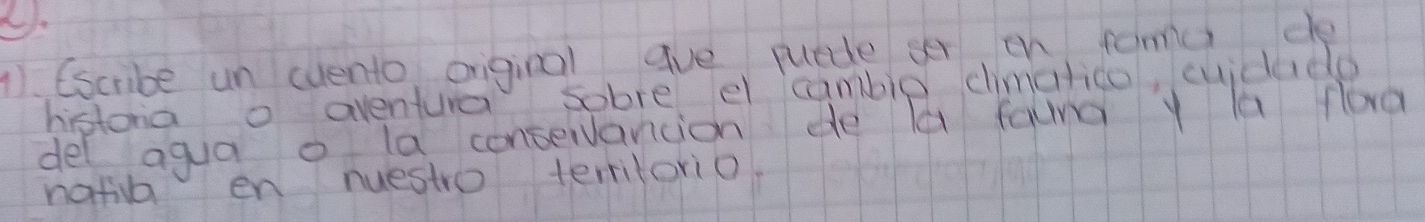 2).
1) Escribe un cuento original que puede ser en forma de
historia o aventura sobre el cambio climatico, cuidado
del agua o la consevancion de la fauna y la flora
nativa en nuestro territorio.